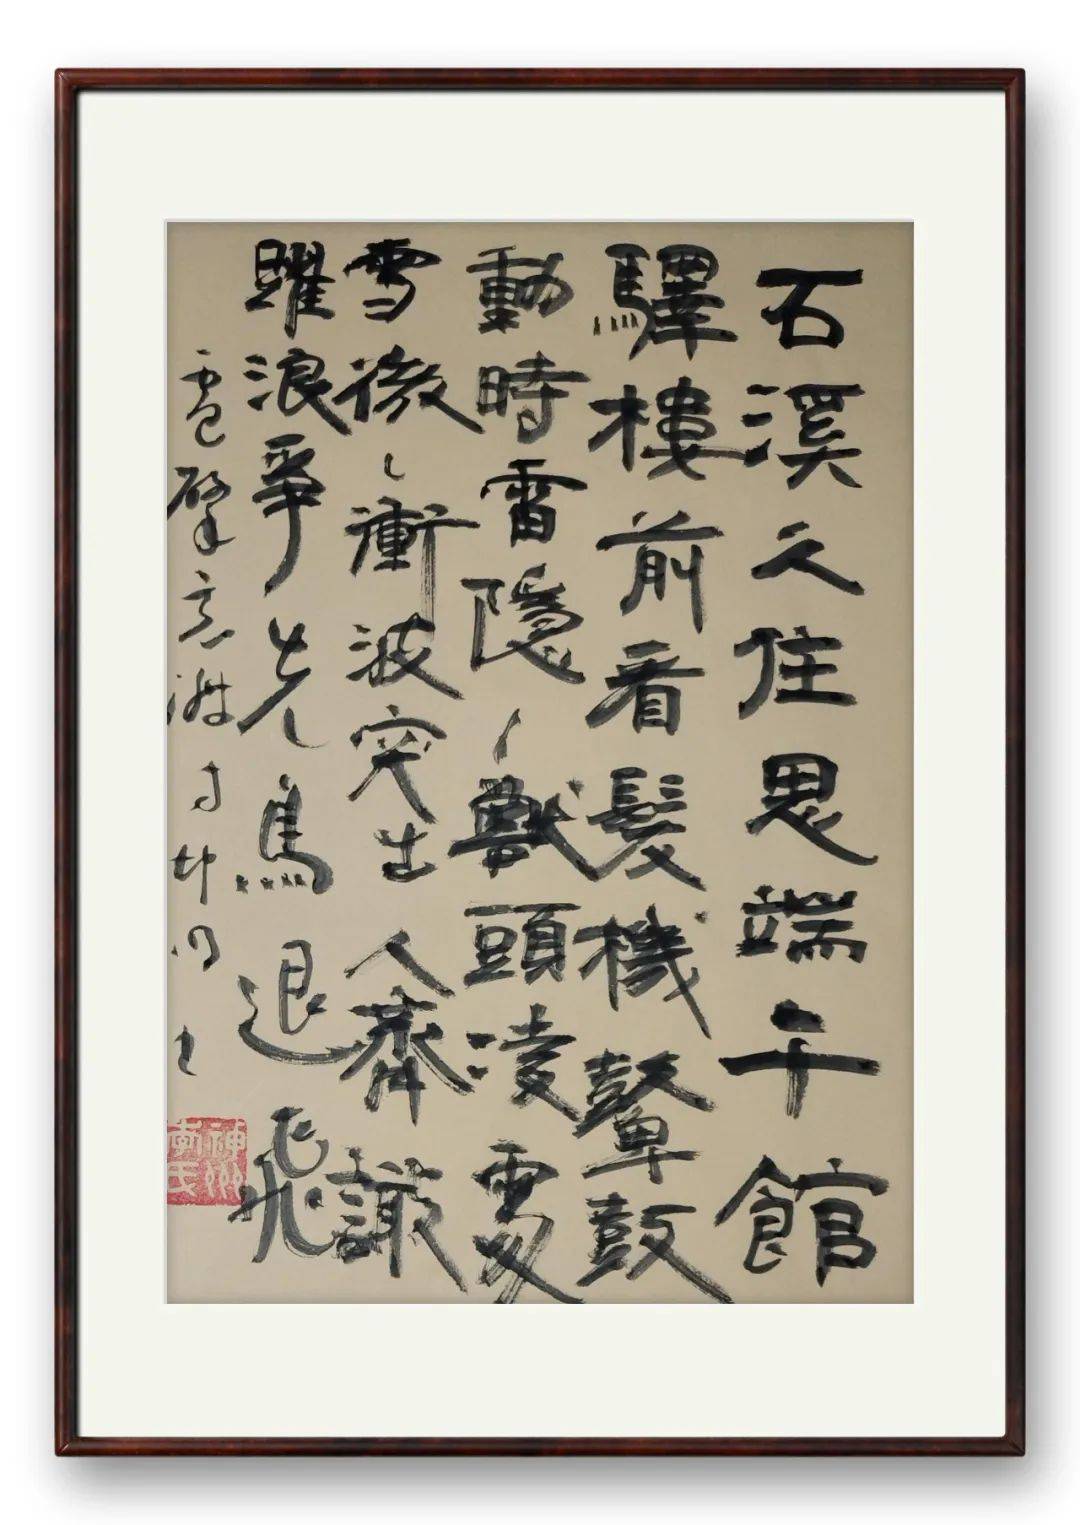 石溪久住思端午館
驛樓前看髮機鼙鼓
動時雷隱〻獸頭凌處
雪微〻衝波突出人齊譀
躍浪爭先鳥退飛
盧肇竞渡诗